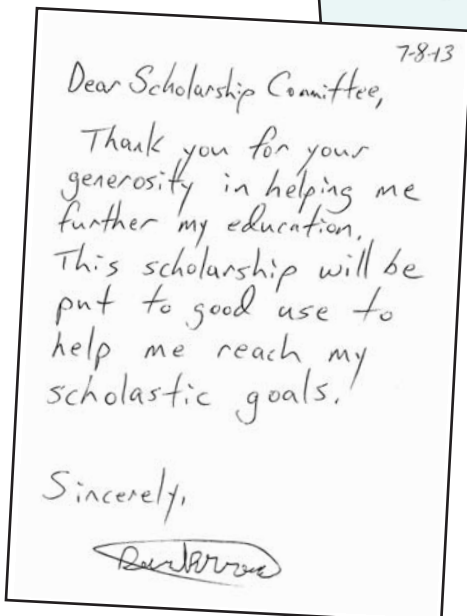 7-8-13
Dear Scholarship Committee,
Thank you for your
generosity in helping me
further my education.
This scholarship will be
put to good use to
help me reach my
scholastic goals.
Sincerely,